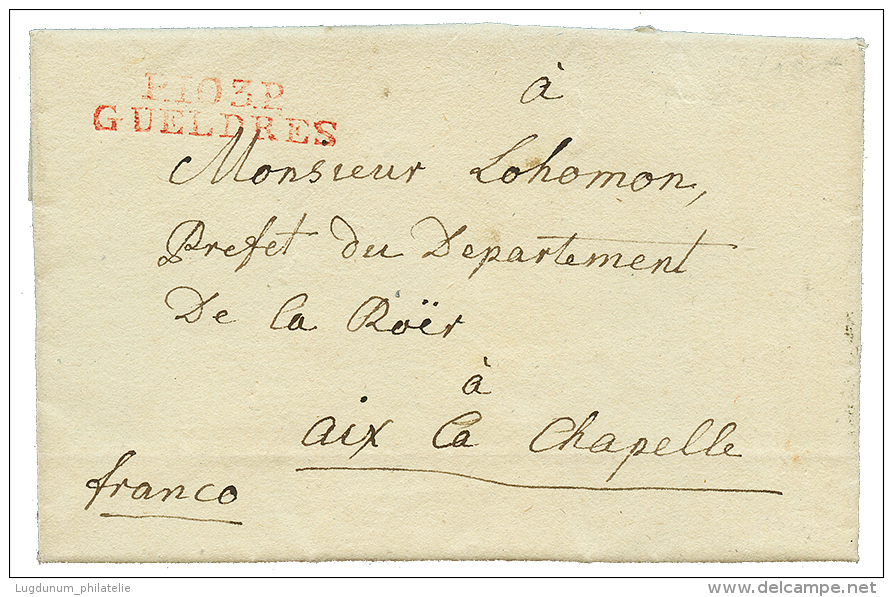 P.103.P.
GUELDRES
à
Monsieur Lohomon,
Prefet du Departement
De la Roër
à
aix la Chapelle
franco
Lugdunum_philatelie
www.delcampe.net